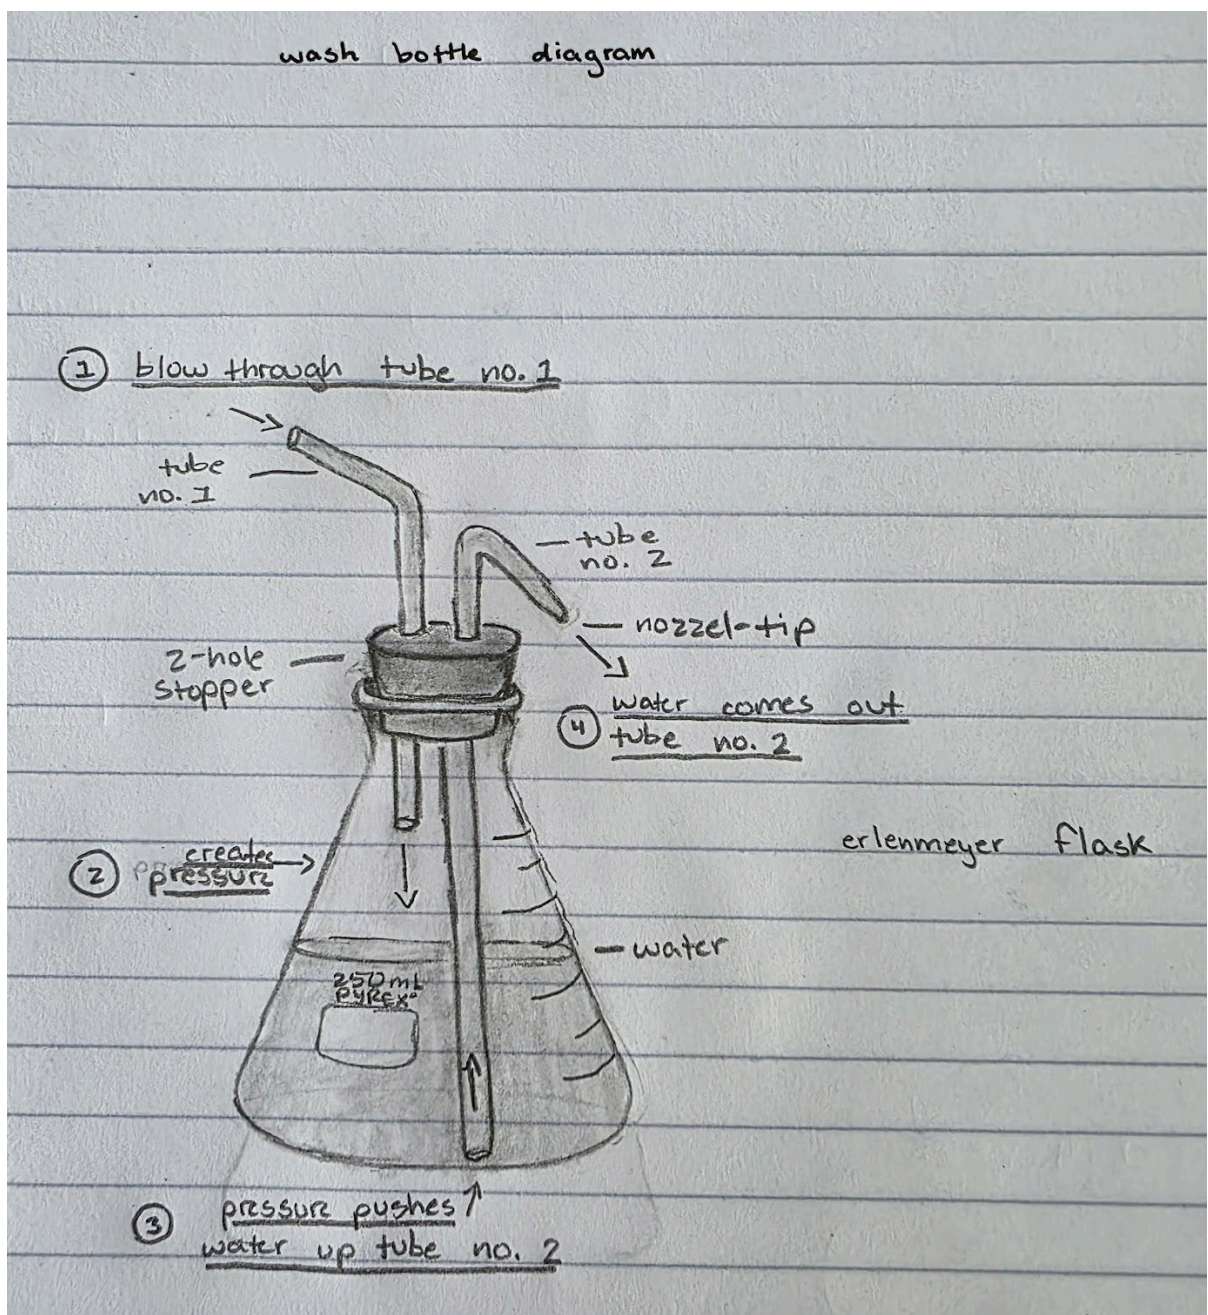 wash bottle diagram
① blow through tube no. 1
tube
no. 1
tube
no. 2
nozzel-tip
2-hole
stopper
④ water comes out
tube no. 2
erlenmeyer flask
② creates
pressure
water
250mL
PYREX
③ pressure pushes
water up tube no. 2